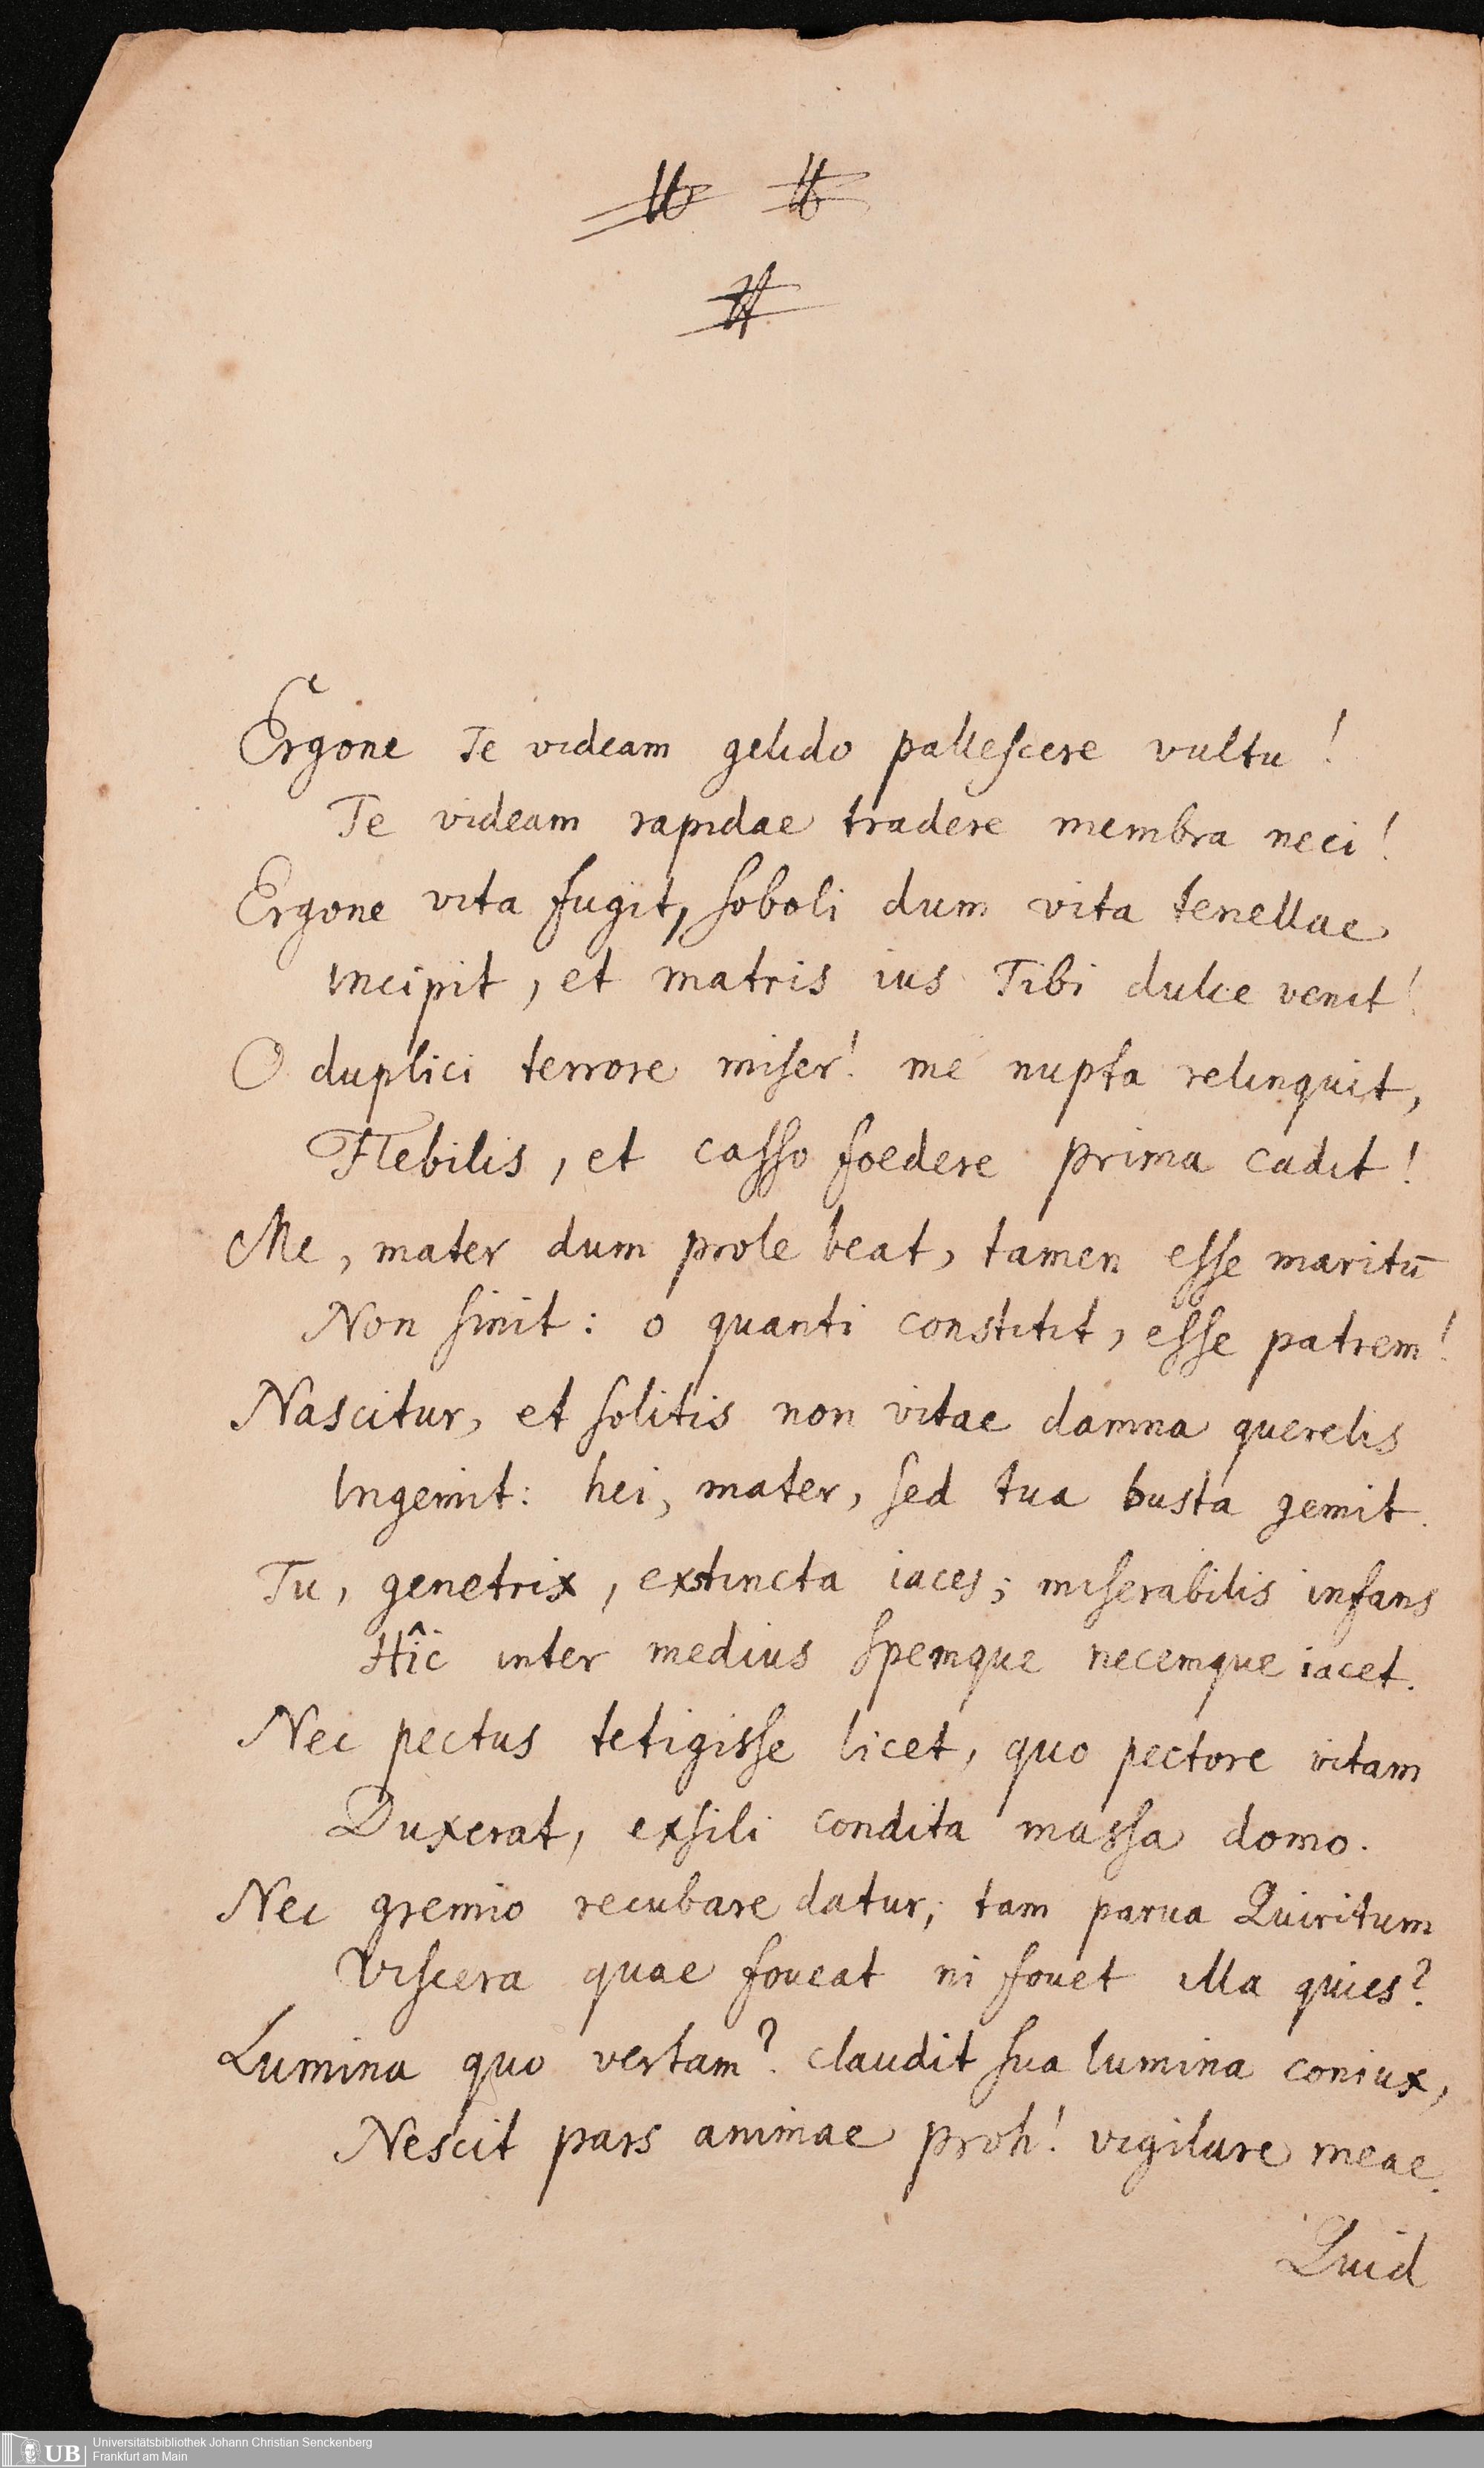 Ergone Te videam gelido palleſcere vultu!
Te videam rapidae tradere membra neci!
Ergone vita fugit, ſoboli dum vita tenellae
incipit, et matris ius Tibi dulce venit!
O duplici terrore miſer! me nupta relinquit,
Flebilis, et caſſo foedere prima cadit!
Me, mater dum prole beat, tamen eſſe maritū
Non ſinit: o quanti constitit, eſſe patrem!
Nascitur, et ſolitis non vitae damna querelis
Ingemit: hei, mater, ſed tua busta gemit.
Tu, genetrix, extincta iaces; miſerabilis infans
Hîc inter medius ſpemque necemque iacet.
Nec pectus tetigisſe licet, quo pectore vitam
Duxerat, exſili condita massa domo.
Nec gremio recubare datur; tam parua Quiritum
Viſcera quae foueat ni fouet illa quies?
Lumina quo vertam? claudit ſua lumina coniux,
Nescit pars animae proh! vigilare meae.
Quid
UB Universitätsbibliothek Johann Christian Senckenberg
Frankfurt am Main